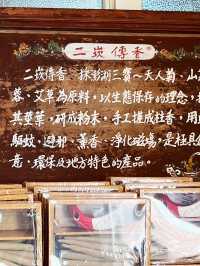 二崁傳香
二崁傳香、採澎湖三寶～天人菊、山
蓉、艾草為原料,以生態保存的理念,
其莖葉,研成粉末,手工搓成柱香,用
驅蚊、避邪、薰香、淨化磁場,是極具
意、環保及地方特色的產品。